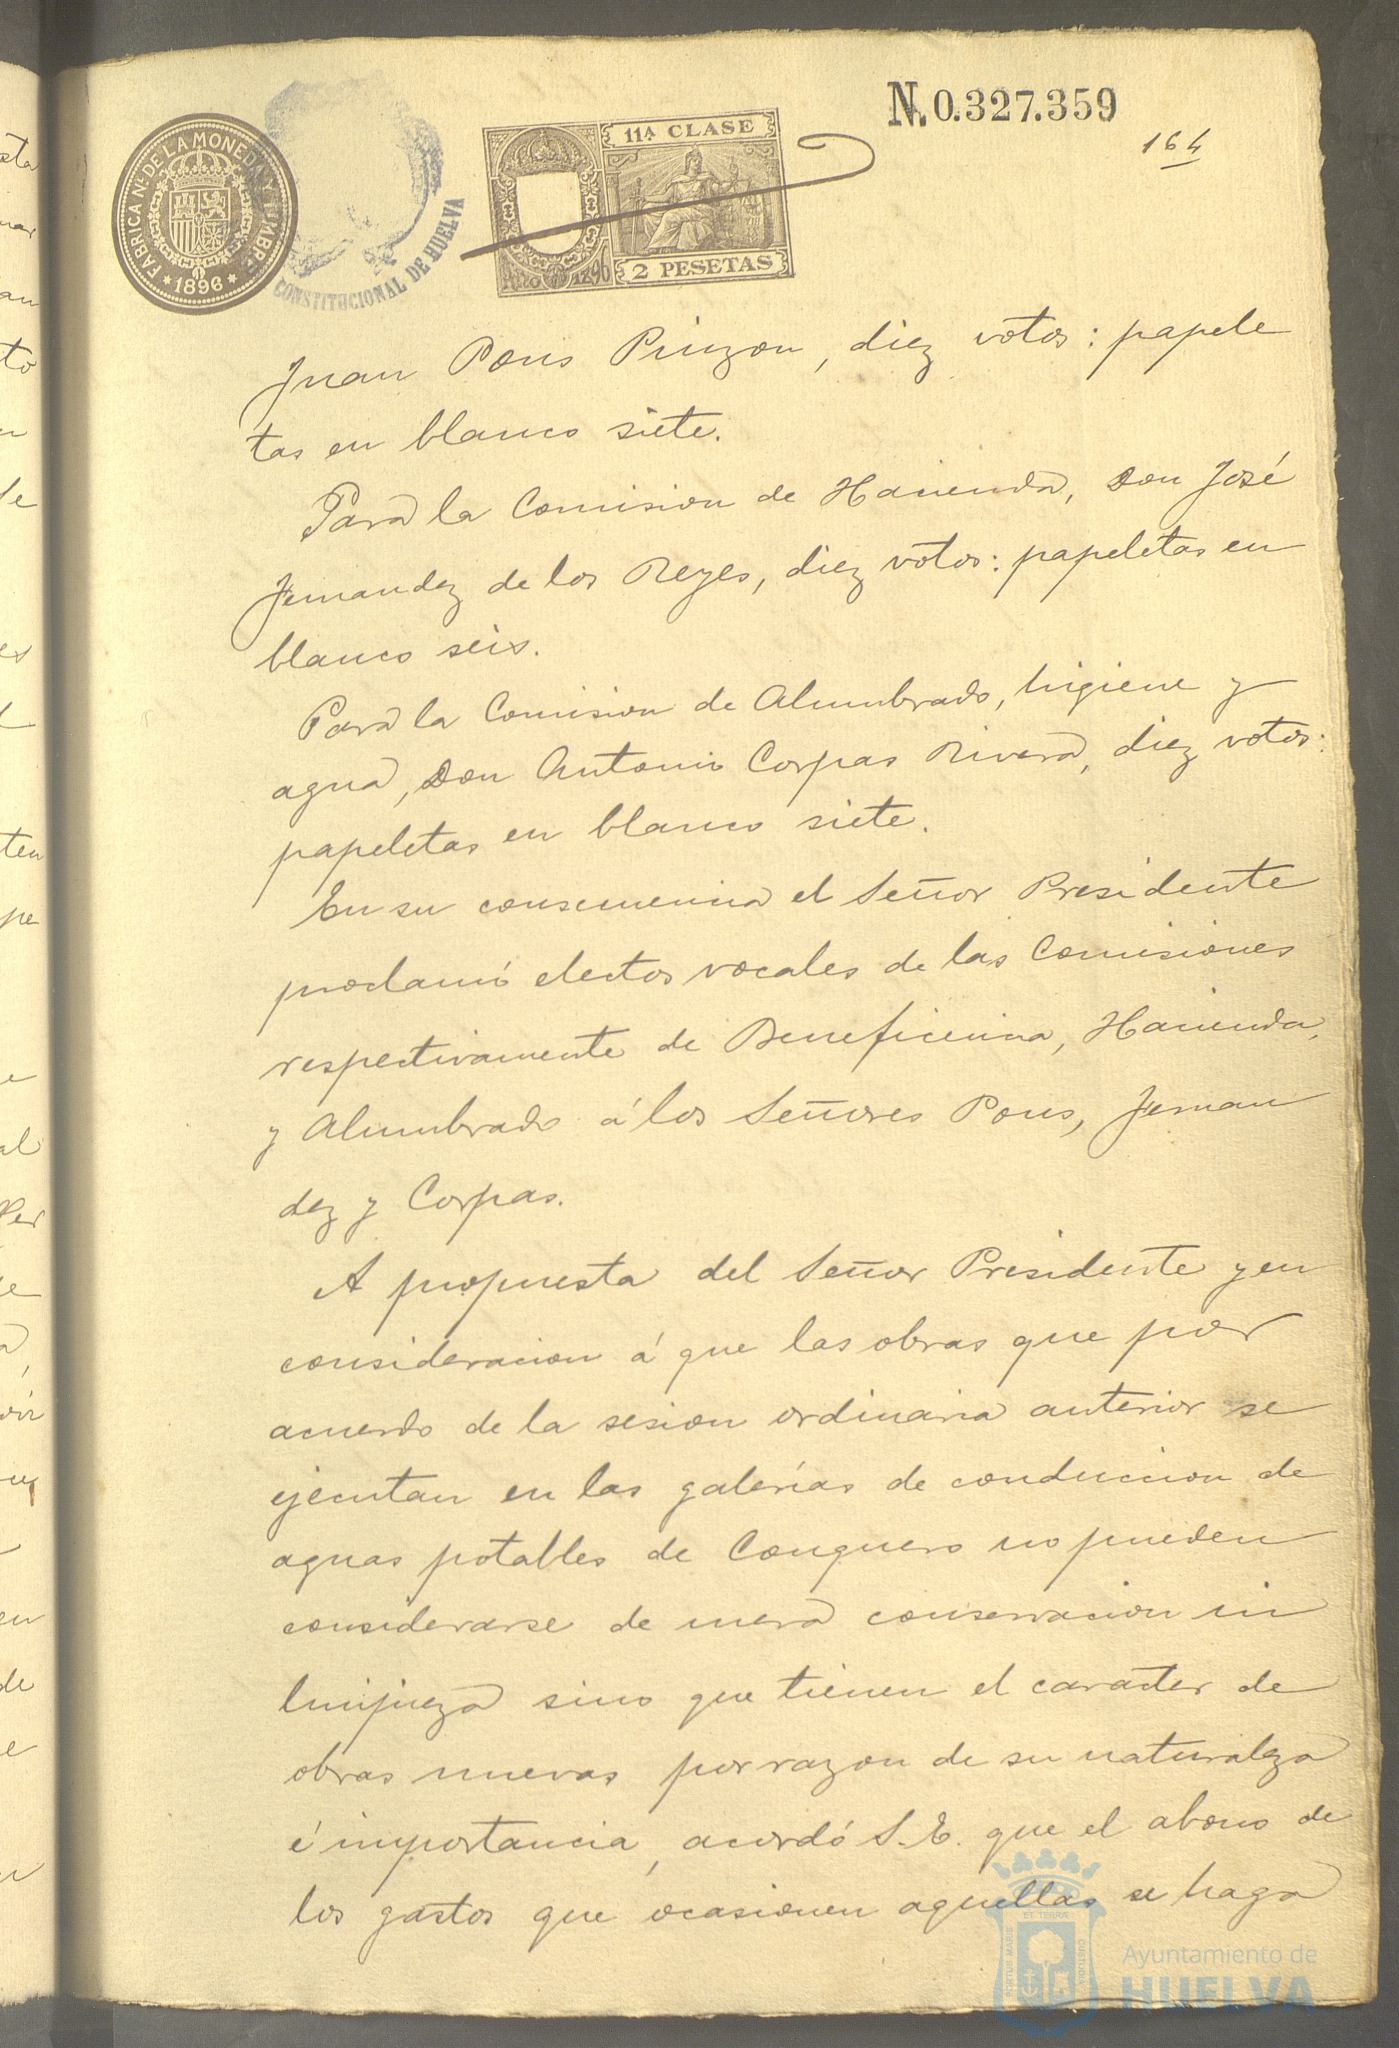 N. 0.327.359
164
FABRICA NL. DE LA MONEDA Y TIMBRE
* 1896 *
CONSTITUCIONAL DE HUELVA
11A CLASE
Año 1896
2 PESETAS
Juan Pons Pinzon, diez votos: papele
tas en blanco siete.
Para la Comision de Hacienda, Don José
Fernandez de los Reyes, diez votos: papeletas en
blanco seis.
Para la Comision de Alumbrado, higiene y
agua, Don Antonio Corpas Rivera, diez votos:
papeletas en blanco siete.
En su consecuencia el Señor Presidente
proclamó electos vocales de las Comisiones
respectivamente de Beneficencia, Hacienda,
y Alumbrado á los Señores Pons, Fernan
dez y Corpas.
A propuesta del Señor Presidente y en
consideracion á que las obras que por
acuerdo de la sesion ordinaria anterior se
ejecutan en las galerías de conduccion de
aguas potables de Conquero no pueden
considerarse de mera conservacion ni
limpieza sino que tienen el caracter de
obras nuevas por razon de su naturaleza
é importancia, acordó S. E. que el abono de
los gastos que ocasionen aquellas se haga
Ayuntamiento de
HUELVA